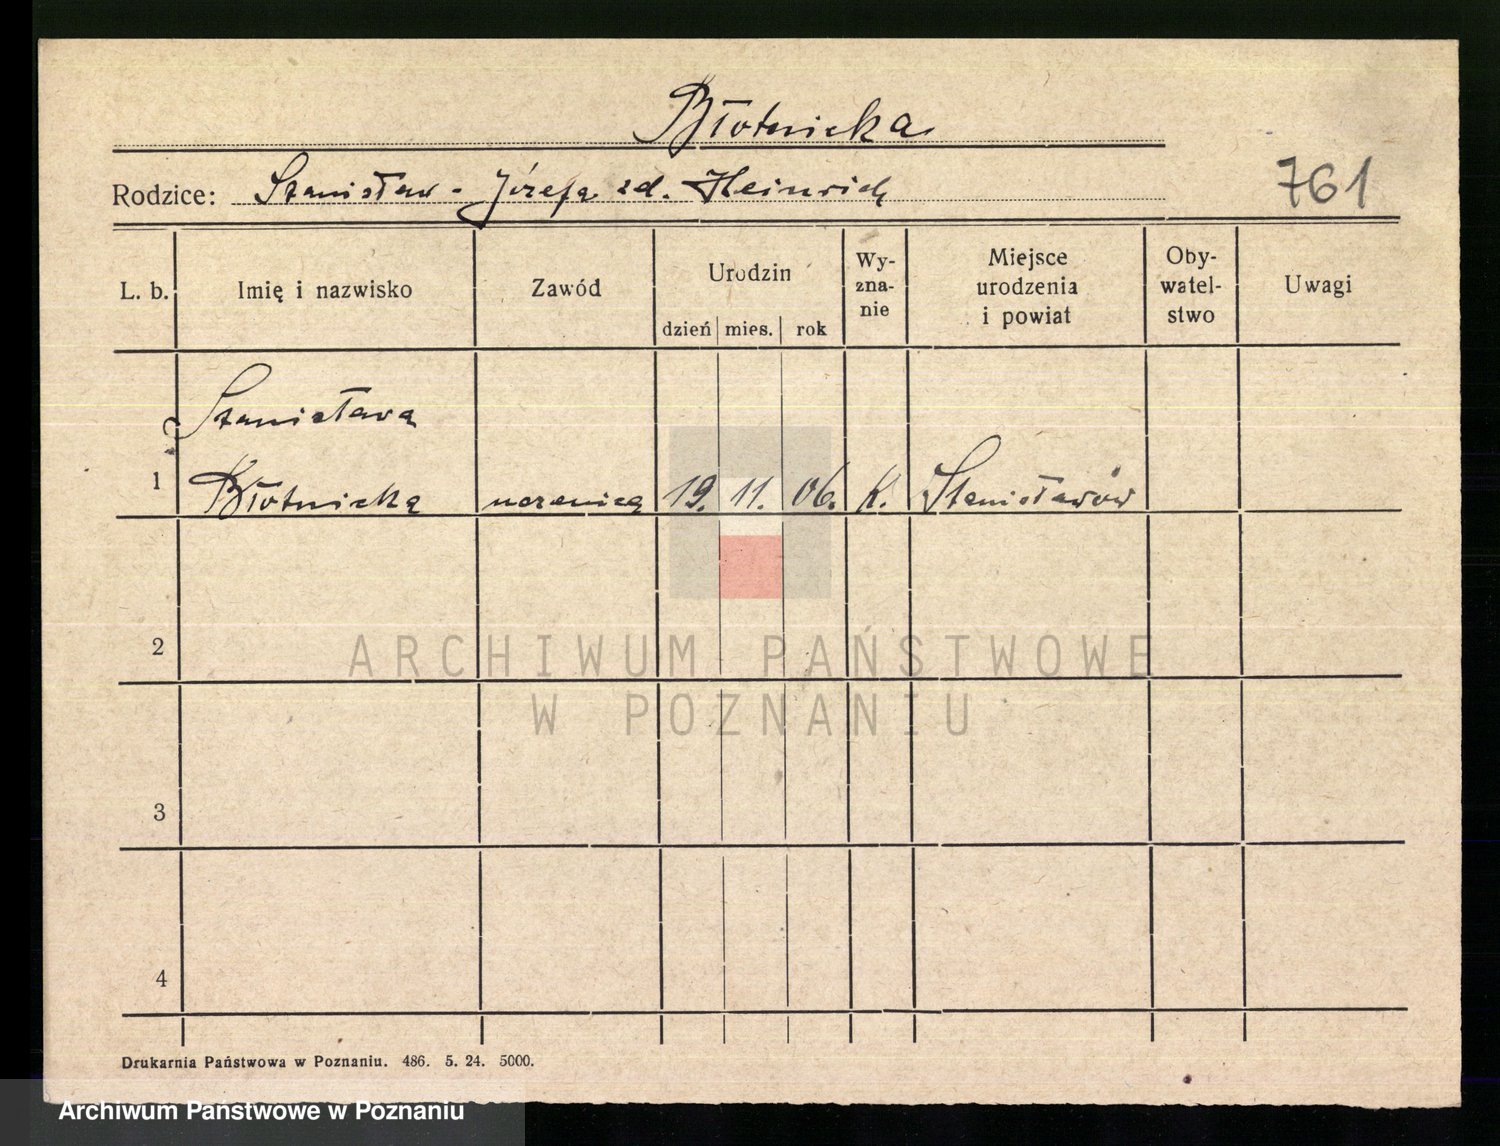 Błotnicka
Rodzice: Stanisław - Józefa zd. Heinrich
761
L. b. Imię i nazwisko Zawód Urodzin dzień mies. rok Wy-zna-nie Miejsce urodzenia i powiat Oby-watel-stwo Uwagi
Stanisława
1 Błotnicka uczenica 19. 11. 06. k. Stanisławów
2
ARCHIWUM PAŃSTWOWE
W POZNANIU
3
4
Drukarnia Państwowa w Poznaniu. 486. 5. 24. 5000.
Archiwum Państwowe w Poznaniu